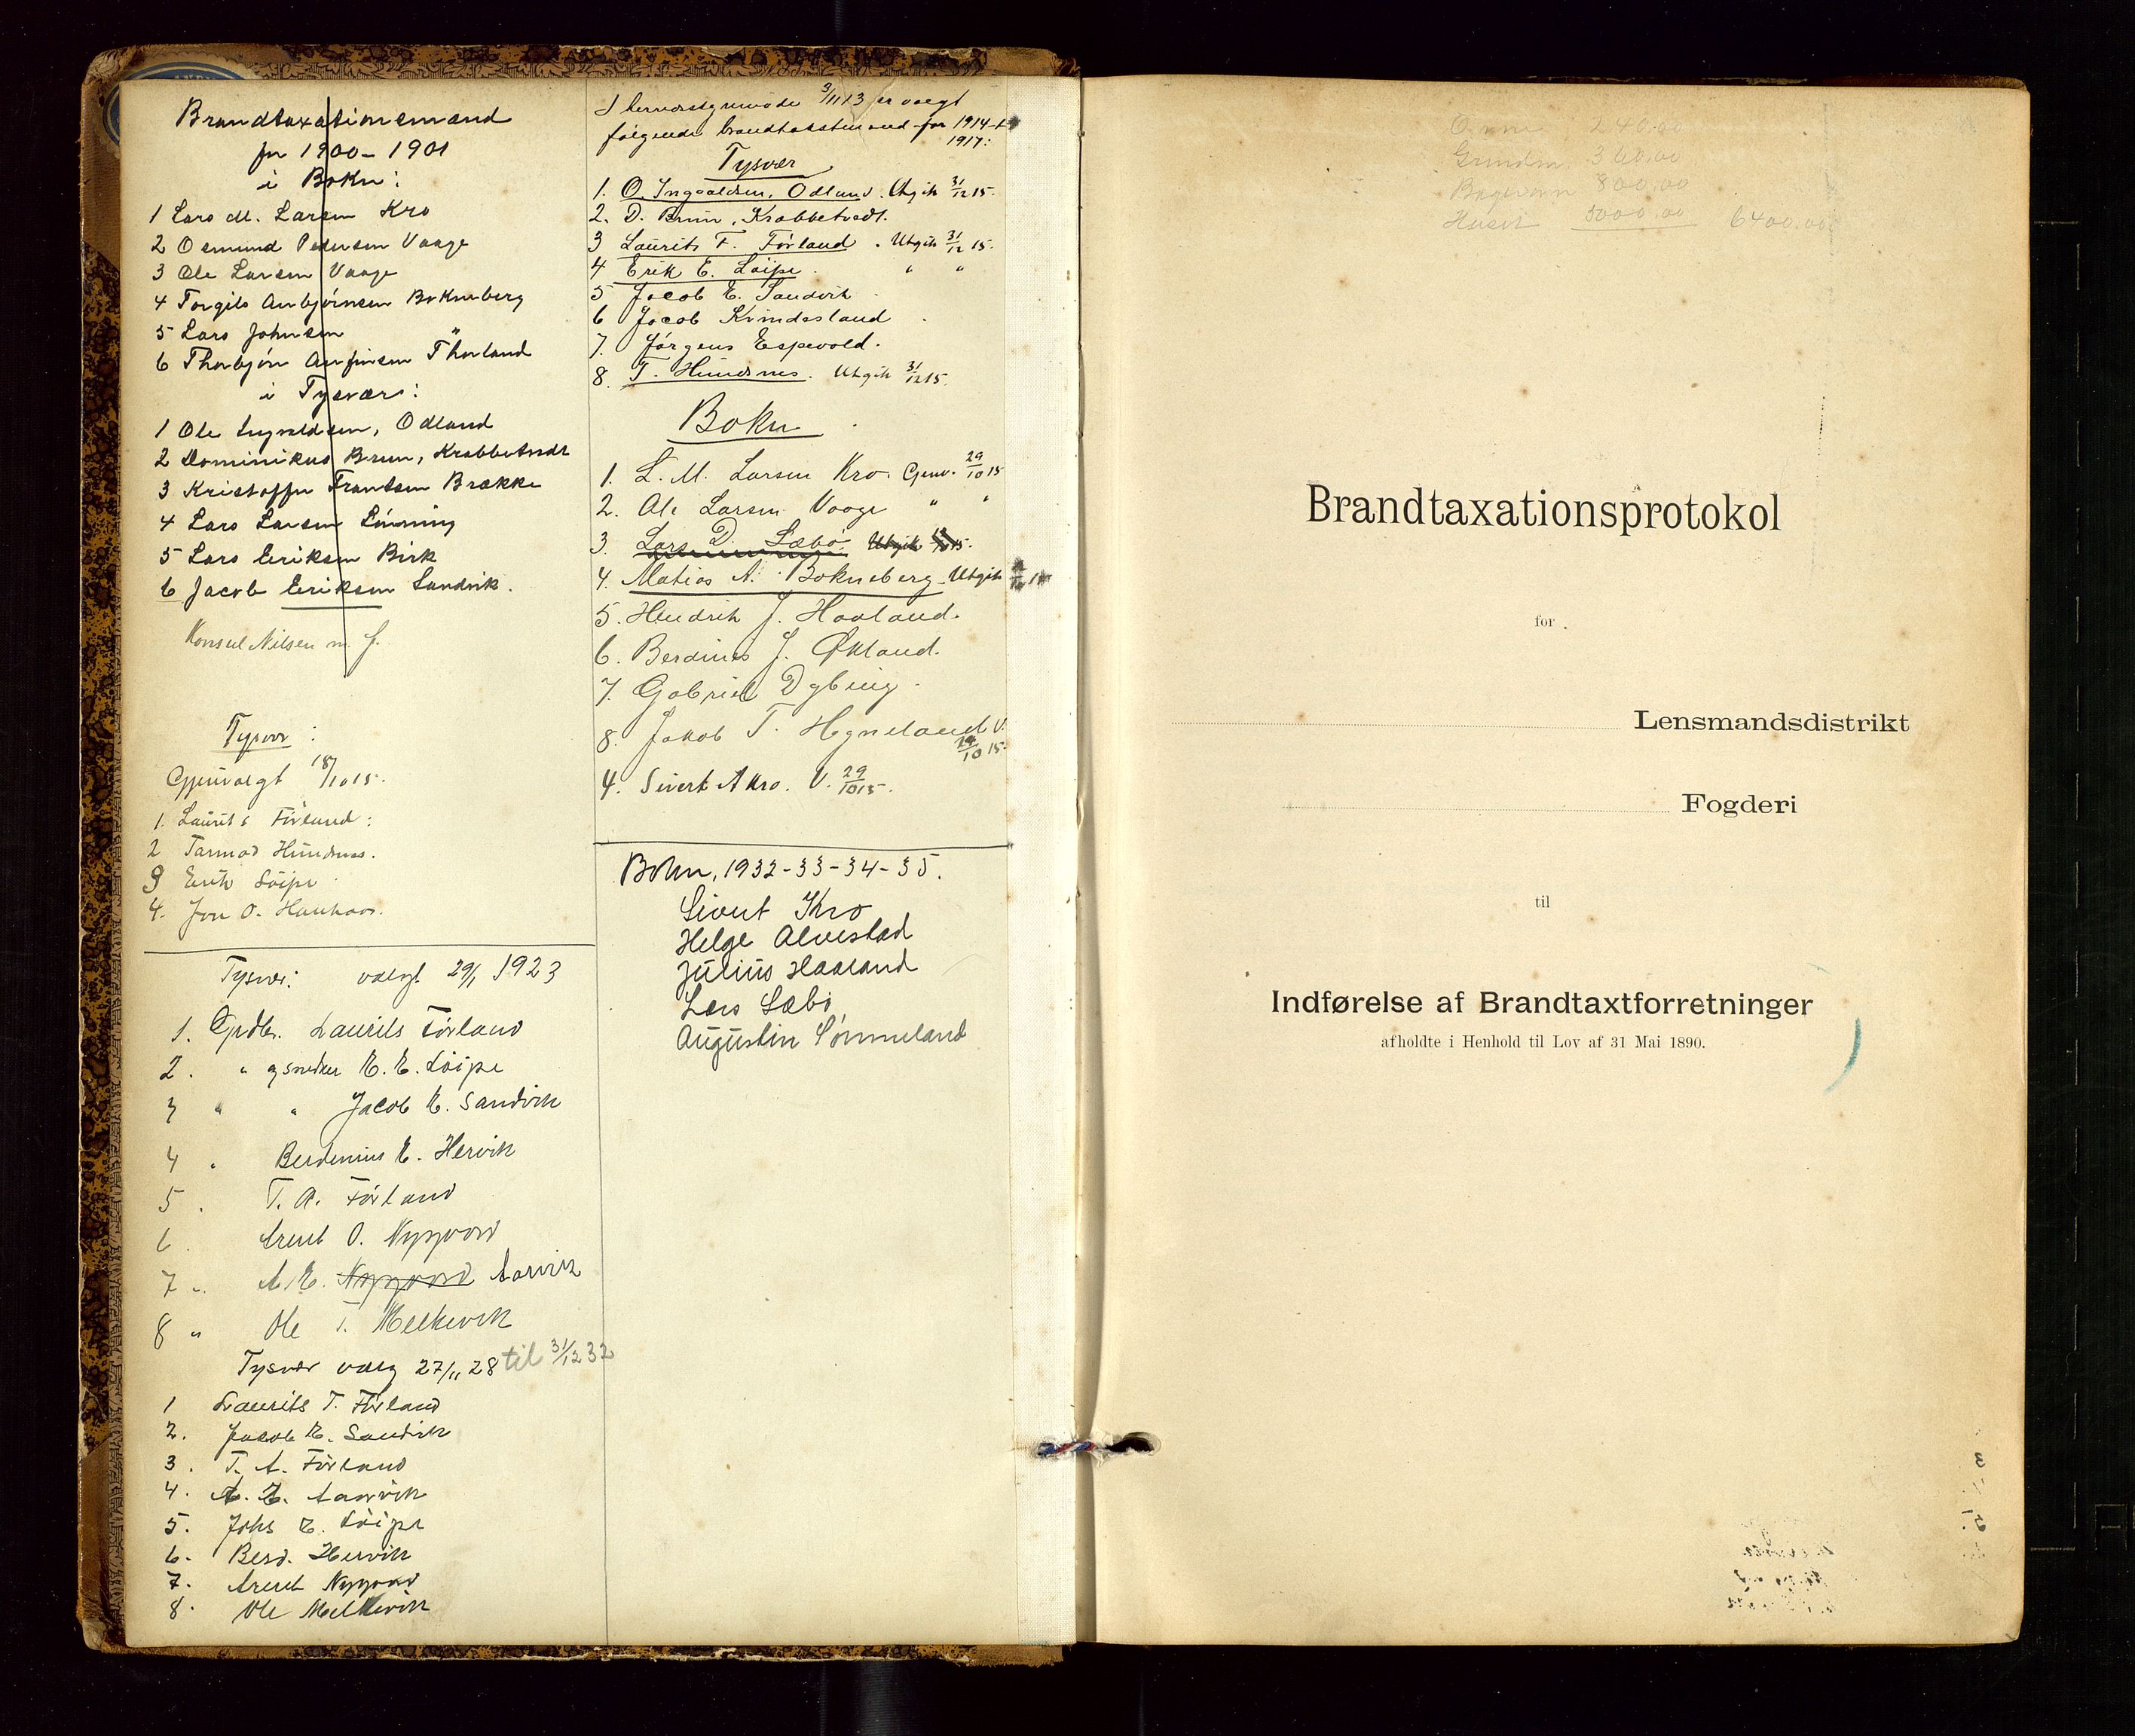 Brandtaxationsmænd
for 1900-1901
i Bokn:
1 Lars M. Larsen Kro
2 Osmund Pedersen Vaage
3 Ole Larsen Vaage
4 Torgils Anbjørnsen Bokneberg
5 Lars Johnsen "
6 Thorbjørn Anfinsen Thorland
i Tysvær:
1 Ole Ingvaldsen, Odland
2 Dominikus Brun, Krabbetvedt
3 Kristoffer Frantsen Brække
4 Lars Larsen Lønning
5 Lars Eriksen Birk
6 Jacob Eriksen Sandvik.
Konsul Nilsen m. f.
Tysvær:
Gjenvalgt 18/10 15.
1. Laurits Førland:
2 Tarmod Hundsnes.
3 Erik Løipe
4. Jon O. Haukaas.
Tysvær: valgt 29/1 1923
1. Grdbr. Laurits Førland
2. " og snedker E. E. Løipe
3 " " Jacob E. Sandvik
4 " Berdenius E. Hervik
5 . T. A. Førland
6 . Arent O. Nygaard
7 " A. E. Nygaard Aarvik
8 " Ole T. Melkevik
Tysvær valg 27/11 28 til 31/12 32
1 Laurits T. Førland
2. Jacob E. Sandvik
3. T. A. Førland
4. A. E. Aarvik
5. Johs E. Løipe
6. Berd. Hervik
7. Arent Nygaard
8. Ole Melkevik
I herredstyremøde 3/11 13 er valgt
følgende brandtakstmænd for 1914 t
1917:
Tysvær
1. O. Ingvaldsen, Odland. Utgik 31/12 15.
2. D. Brun, Krabbetvedt.
3 Laurits T. Førland. Utgik 31/12 15.
4 Erik E. Løipe. " "
5 Jacob E. Sandvik
6 Jacob Kvindesland
7. Jørgens Espevold.
8. T. Hundsnes. Utgik 31/12 15.
Bokn
1. L. M. Larsen Kro. Gjenv. 29/10 15
2. Ole Larsen Vaage " "
3. Lars D. Sæbø. Utgik 15.
4. Matias A. Bokneberg. Utgik
5. Hendrik J. Havland.
6. Berdines J. Økland.
7. Gabriel Dybing.
8. Jakob T. Hogneland V.
29/10 15.
4. Sivert A Kro. V. 29/10 15.
Bokn, 1932-33-34-35.
Sivert Kro
Helge Alvestad
Julius Haaland
Lars Sæbø
Augustin Sønneland
Ovne 240.00
Grundm 360.00
Bagerovn 800.00
Huset 5000.00 6400.00
Brandtaxationsprotokol
for
Lensmandsdistrikt
Fogderi
til
Indførelse af Brandtaxtforretninger
afholdte i Henhold til Lov af 31 Mai 1890.